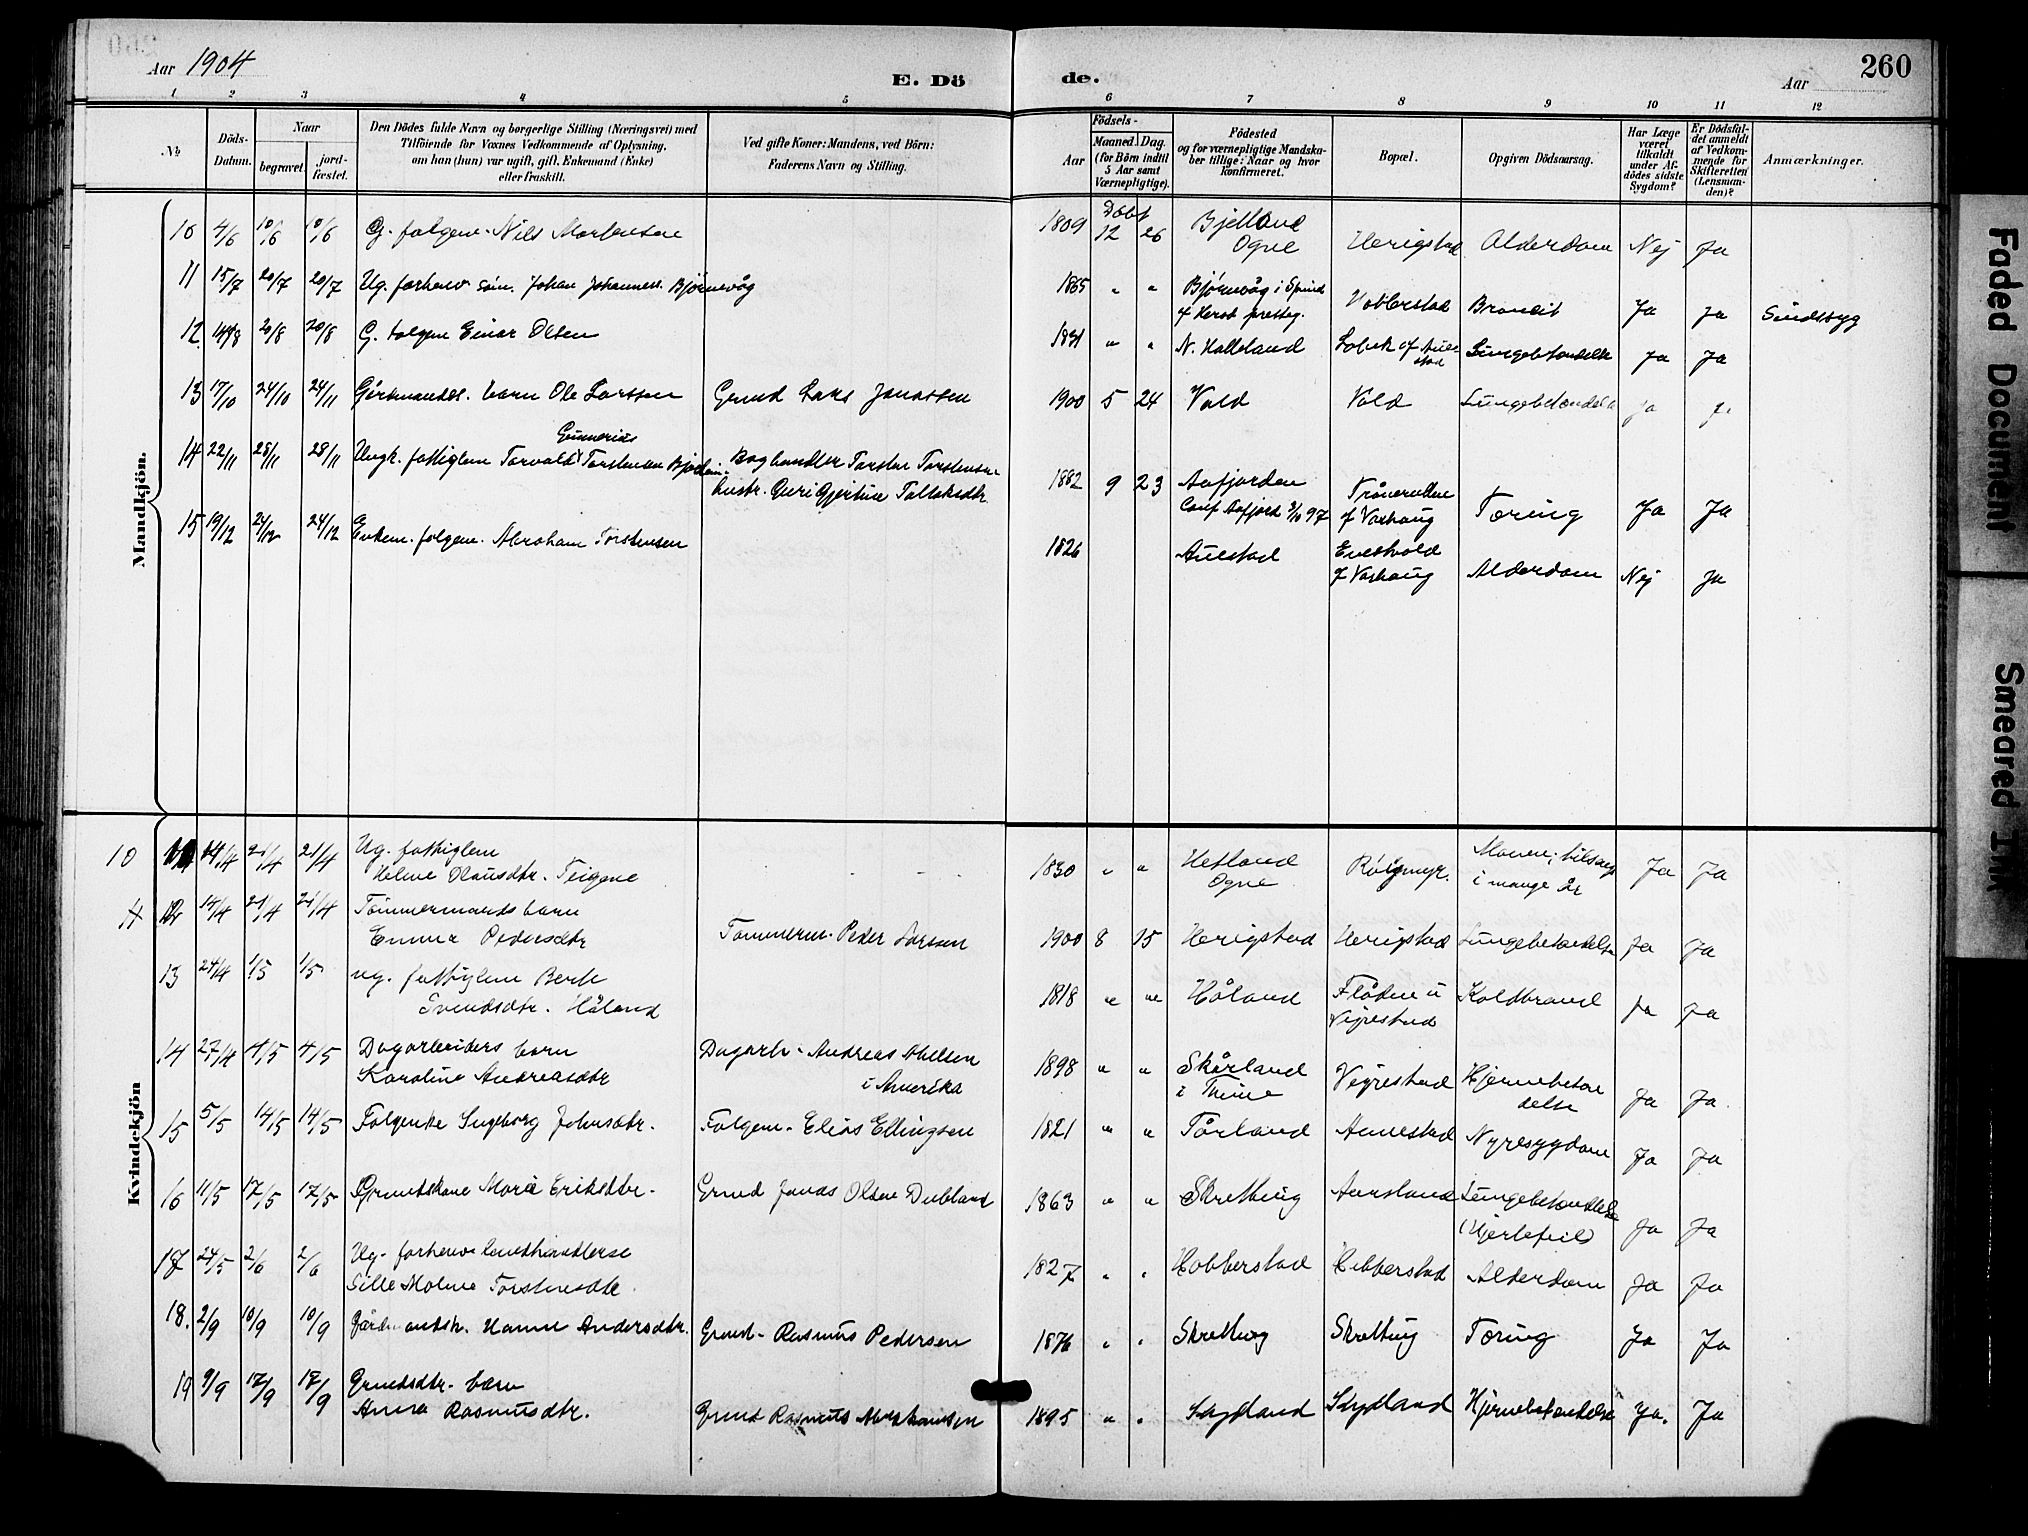 Aar 1904
E. Dö de.
Aar
260
1 2 3 4 5 6 7 8 9 10 11 12
No.
Döds-Datum.
Naar
begravet.
jord-fæstet.
Den Dödes fulde Navn og borgerlige Stilling (Næringsvei) med
Tilföiende for Voxnes Vedkommende af Oplysning,
om han (hun) var ugift, gift, Enkemand (Enke)
eller fraskilt.
Ved gifte Koner: Mandens, ved Börn:
Faderens Navn og Stilling.
Aar
Födsels-
Maaned. Dag.
(for Börn indtil
5 Aar samt
Værnepligtige).
Födested
og for værnepligtige Mandska-
ber tillige: Naar og hvor
konfirmeret.
Bopæl.
Opgiven Dödsaarsag.
Har Læge
været
tilkaldt
under Af-
dödes sidste
Sygdom?
Er Dödsfal-
det anmeldt
af Vedkom-
mende for
Skifteretten
(Lensman-
den)?
Anmærkninger.
Mandkjön.
10 4/6 10/6 10/6 G. folgem. Nils Mortensen 1809 Döbt 12 26 Bjelland Ogne Herigstad Alderdom Nej Ja
11 15/7 20/7 20/7 Ug. forhenv. söm. Johan Johanness. Bjørnevåg 1865 " " Bjørnevåg i Spind Ja Ja Sindssyg
12 14/8 20/8 20/8 G. folgem Einar Olsen " " N. Halleland Lungebetændelse Ja Ja
13 17/10 24/10 24/11 Gårdmandss. barn Ole Larssen Grmd Lars Jonassen 1900 5 24 Vold Vold Lungebetændelse Ja
Gunnerius
14 22/11 28/11 28/11 Ungk. fattiglem Torvald Torstensen Torsten Torstensen
hustr. Guri Gjertine 1882 9 23 Aafjorden
Conf Aafjord 97 af Varhaug Tæring Ja Ja
15 19/12 24/12 24/12 Enkem. folgem. Abraham Torstensen 1826 Aulestad
af Varhaug Alderdom Nej Ja
Kvindekjön
10 14/4 21/4 21/4 Ug. fattiglem
Helene Olausdtr. Teigene 1830 " " Hetland
Ogne Ja Ja
i mange år
11 12 14/4 21/4 21/4 Tömmermands barn
Emma Pedersdtr Tömmerm. Peder Larssen 1900 8 15 Herigstad Herigstad Lungebetændelse Ja Ja
13 24/4 1/5 1/5 ug. fattiglem Berte
Svendsdtr. Håland 1818 " " Håland Vigrestad Koldbrand Ja Ja
14 27/4 4/5 4/5 Dagarbeiders barn
Karoline Andreasdtr Dagarb. Andreas
i Amerika 1898 " " Skårland
i Thime Vigrestad Hjernebetæn
delse Ja Ja
15 5/5 14/5 14/5 Folgenke Ingeborg Johnsdtr. Folgem. Elias Ellingsen 1821 " " Tårland Nyresygdom Ja Ja
16 11/5 17/5 17/5 Grmdskone Maria Eriksdtr. Grmd Jonas Olsen Dubland 1863 " " Skretting Aarsland Lungebetændelse
(Hjertefeil) Ja Ja
17 24/5 2/6 2/6 Ug. forhenv.
Sille Malene Torstensdtr. 1827 " " Hobberstad Hobberstad Alderdom Ja Ja
18. 2/9 10/9 10/9 Gårdmandsk. Hanne Andersdtr. Grmd. Rasmus Pedersen 1876 " " Skretting Skretting Tæring Ja Ja
19 9/9 17/9 17/9 Grmdsdtr. barn
Anna Rasmusdtr. Grmd Rasmus Abrahamsen 1895 " " Skydland Hjernebetændelse Ja. Ja
Faded Document
Smeared Ink